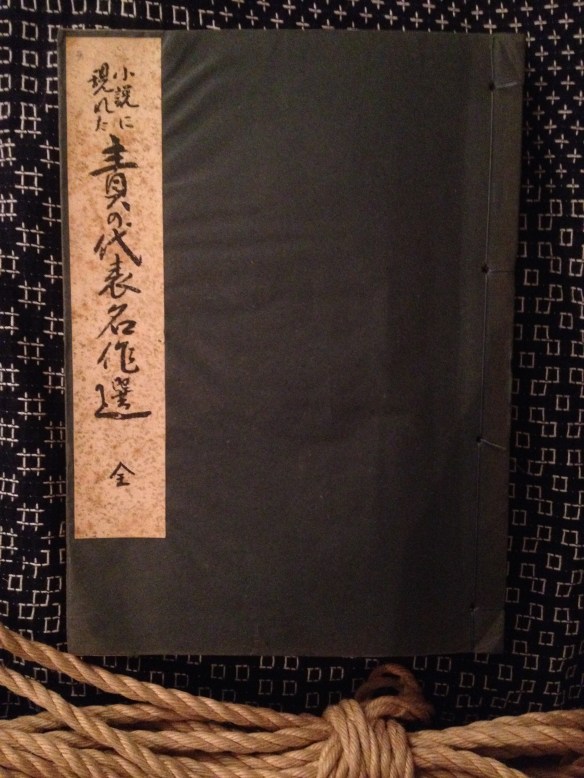 小説に
現れた
責の代表名作選
全